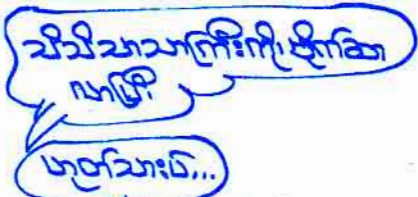 သိသိသာသာကြီးကို ဗိုက်ဆာ
လာပြီ
ဟုတ်သားပဲ...